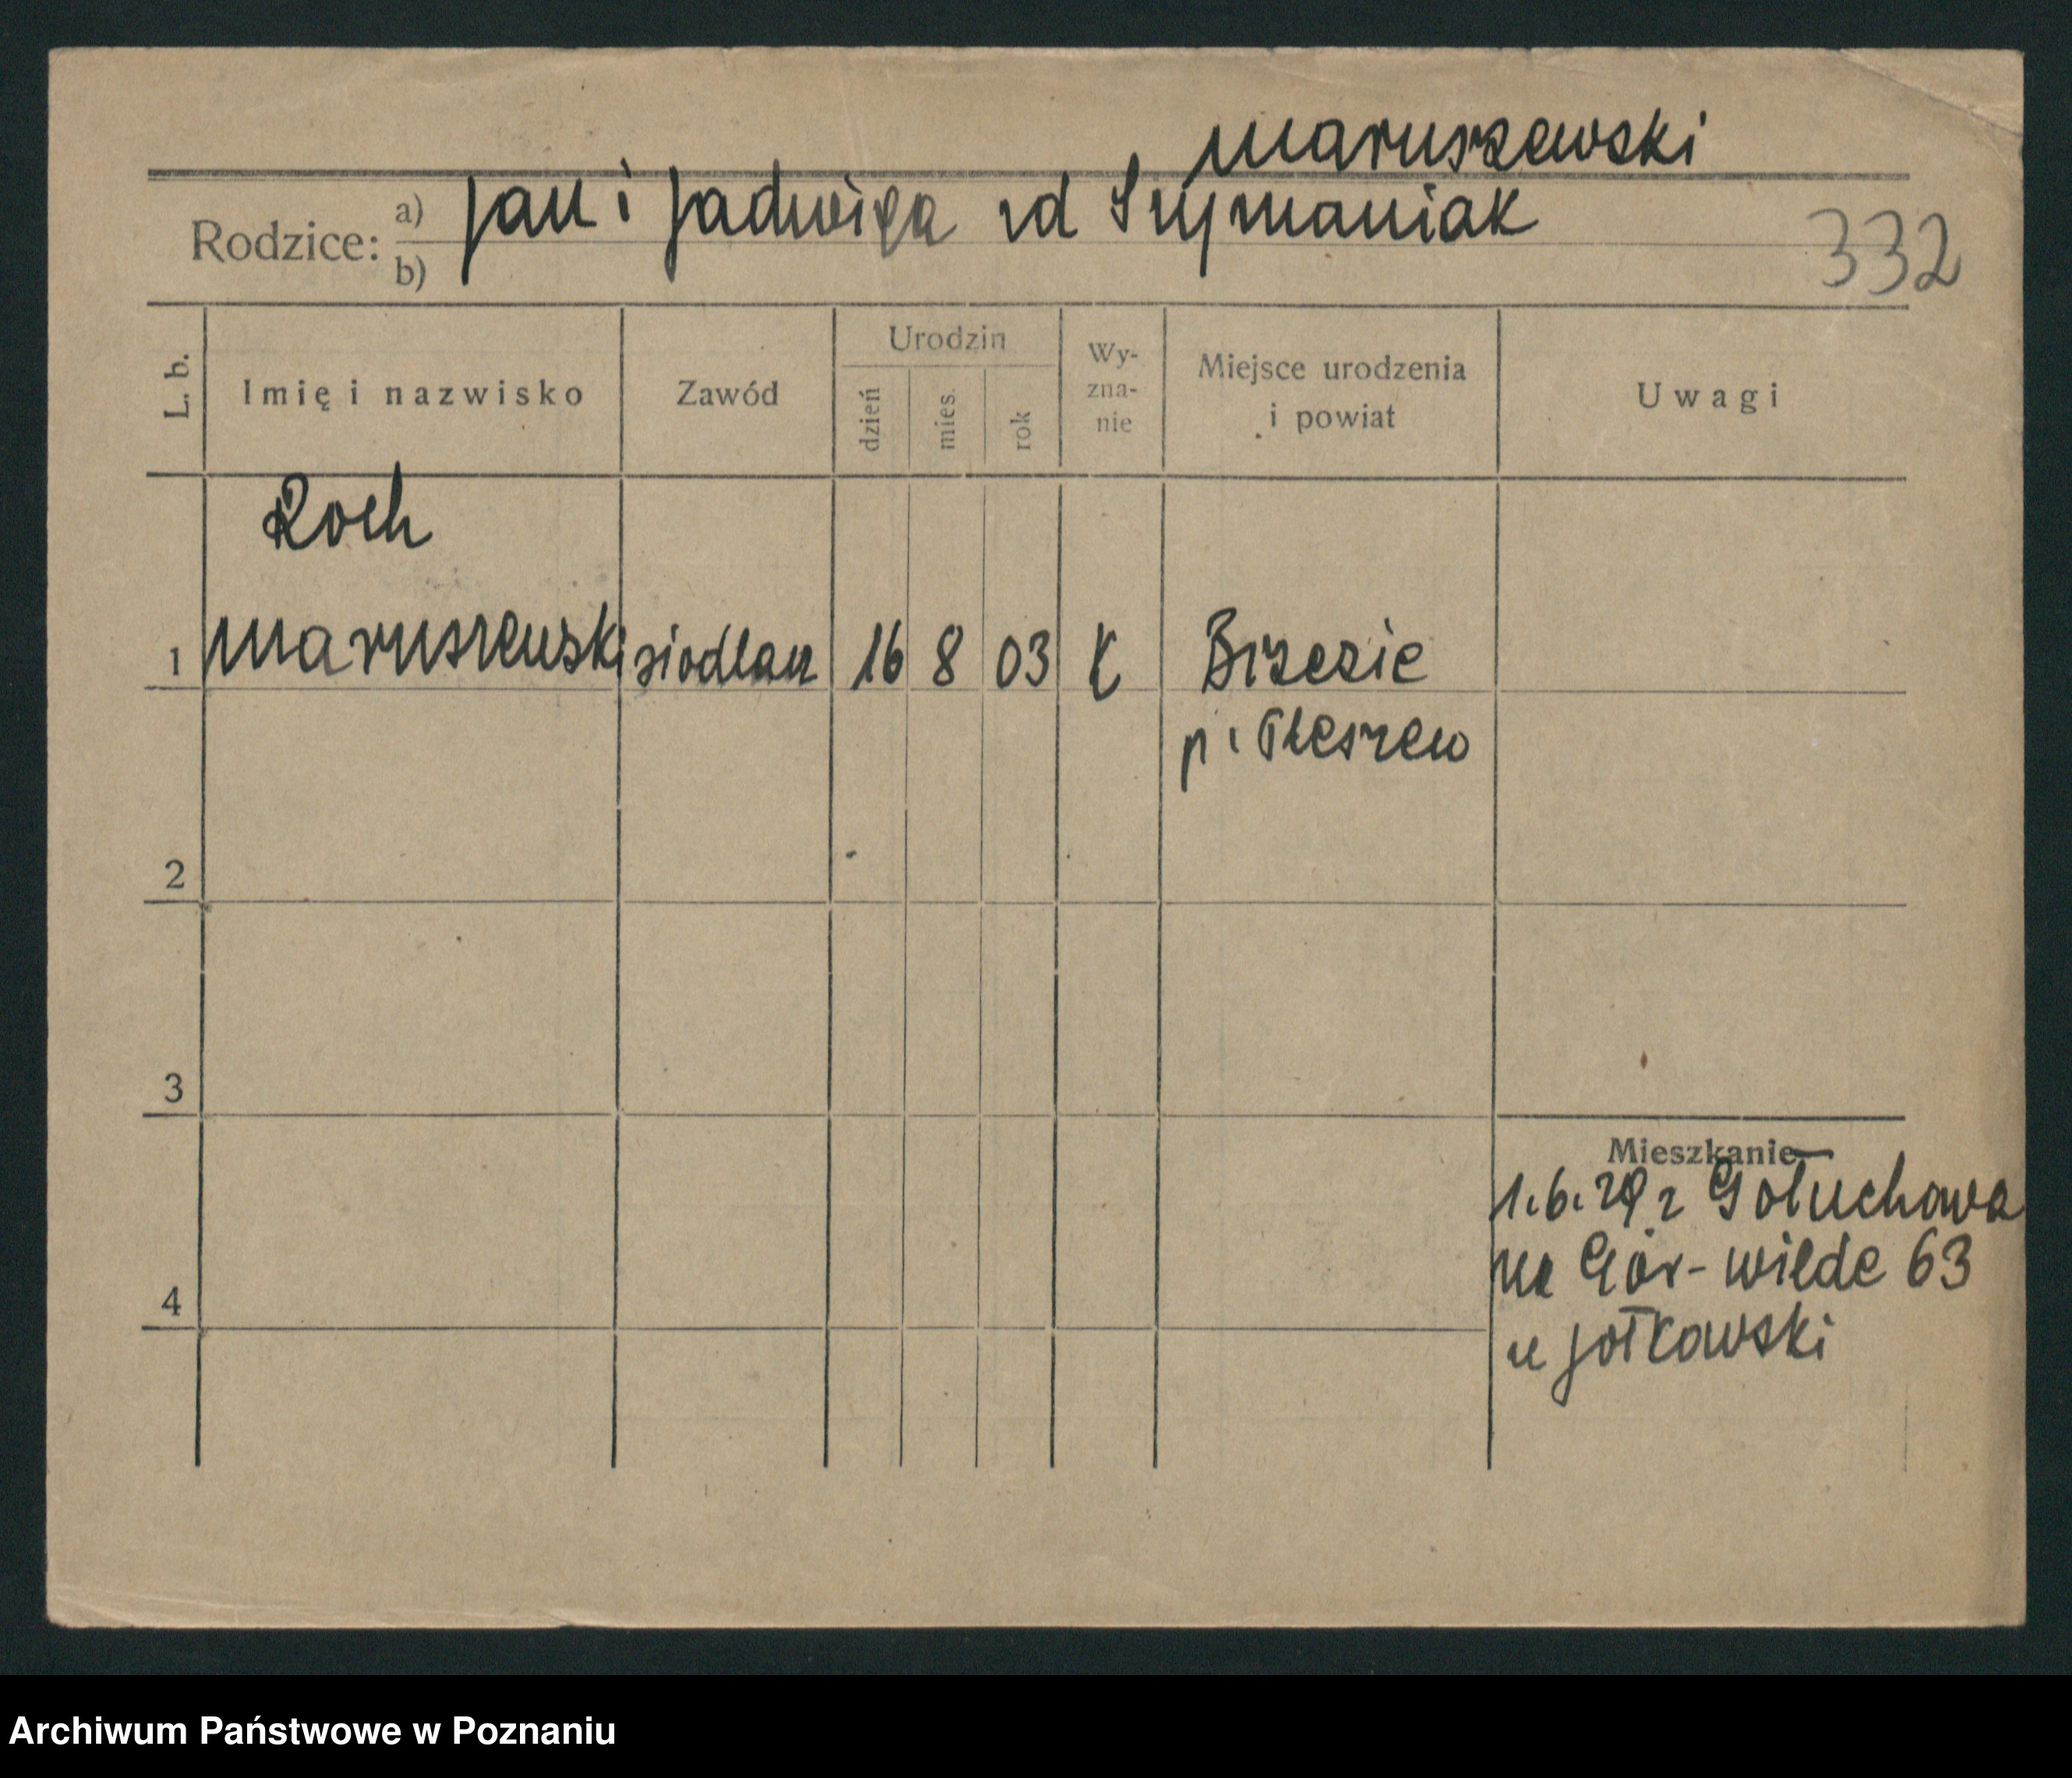 Maruszewski
Rodzice: a) Jan i Jadwiga zd Szymaniak
b)
332
L. b. Imię i nazwisko Zawód Urodzin dzień mies. rok Wy-zna-nie Miejsce urodzenia i powiat Uwagi
Roch
1 Maruszewski siodlarz 16 8 03 K Brzezie
p. Pleszew
2
3
Mieszkanie
1.6.29 z Gołuchowa
4 na Gór-wilde 63
u Jołkowski
Archiwum Państwowe w Poznaniu